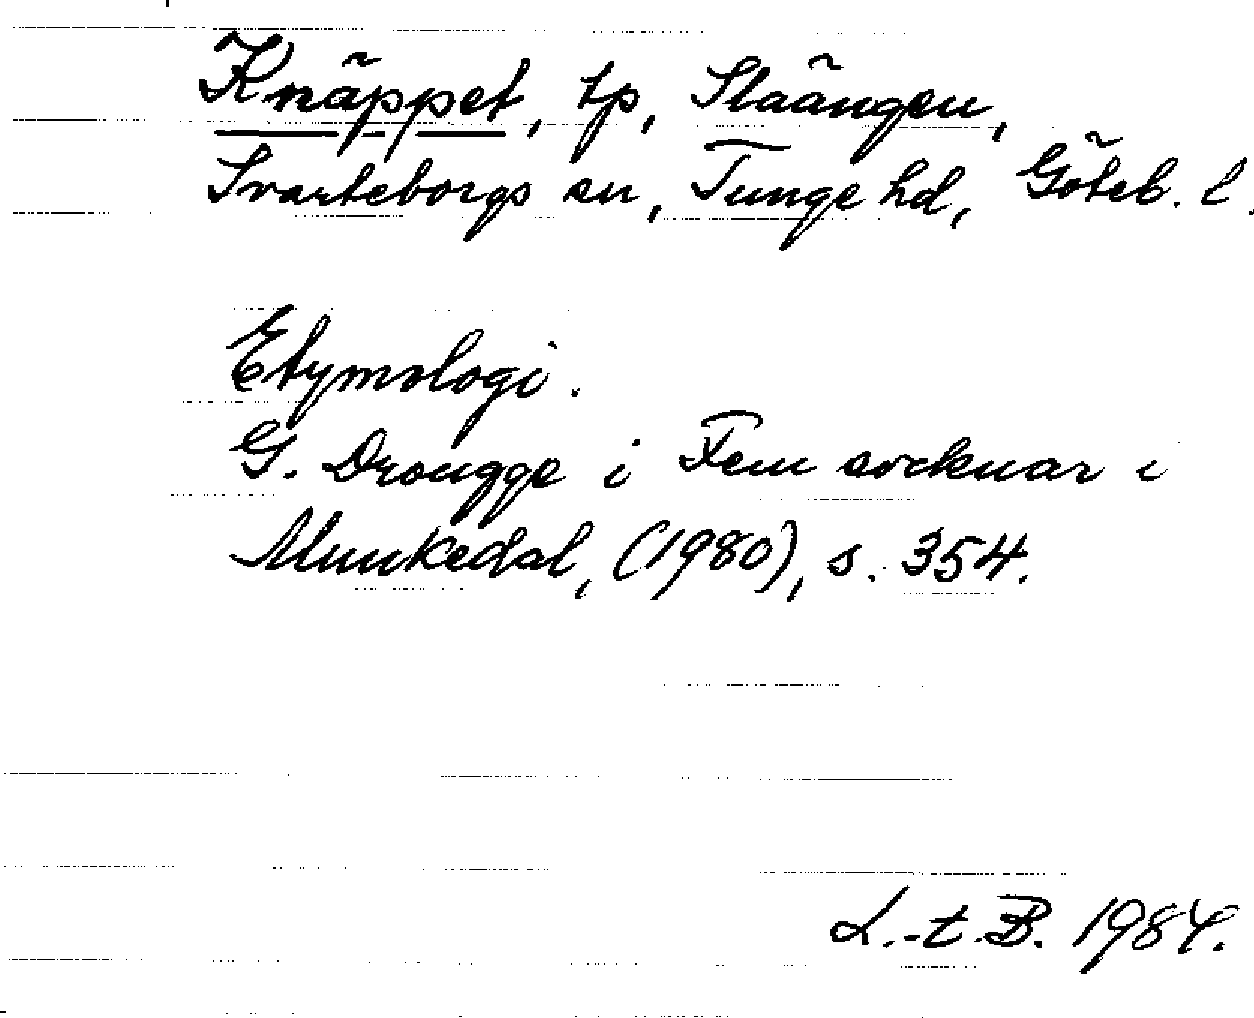 Knäppet, tp, Slaängen,
Svarteborgs sn, Tunge hd, Göteb. l.
Etymologi.
G. Drougge i Fem socknar i
Munkedal, (1980), s. 354.
L.-t.B. 1984.